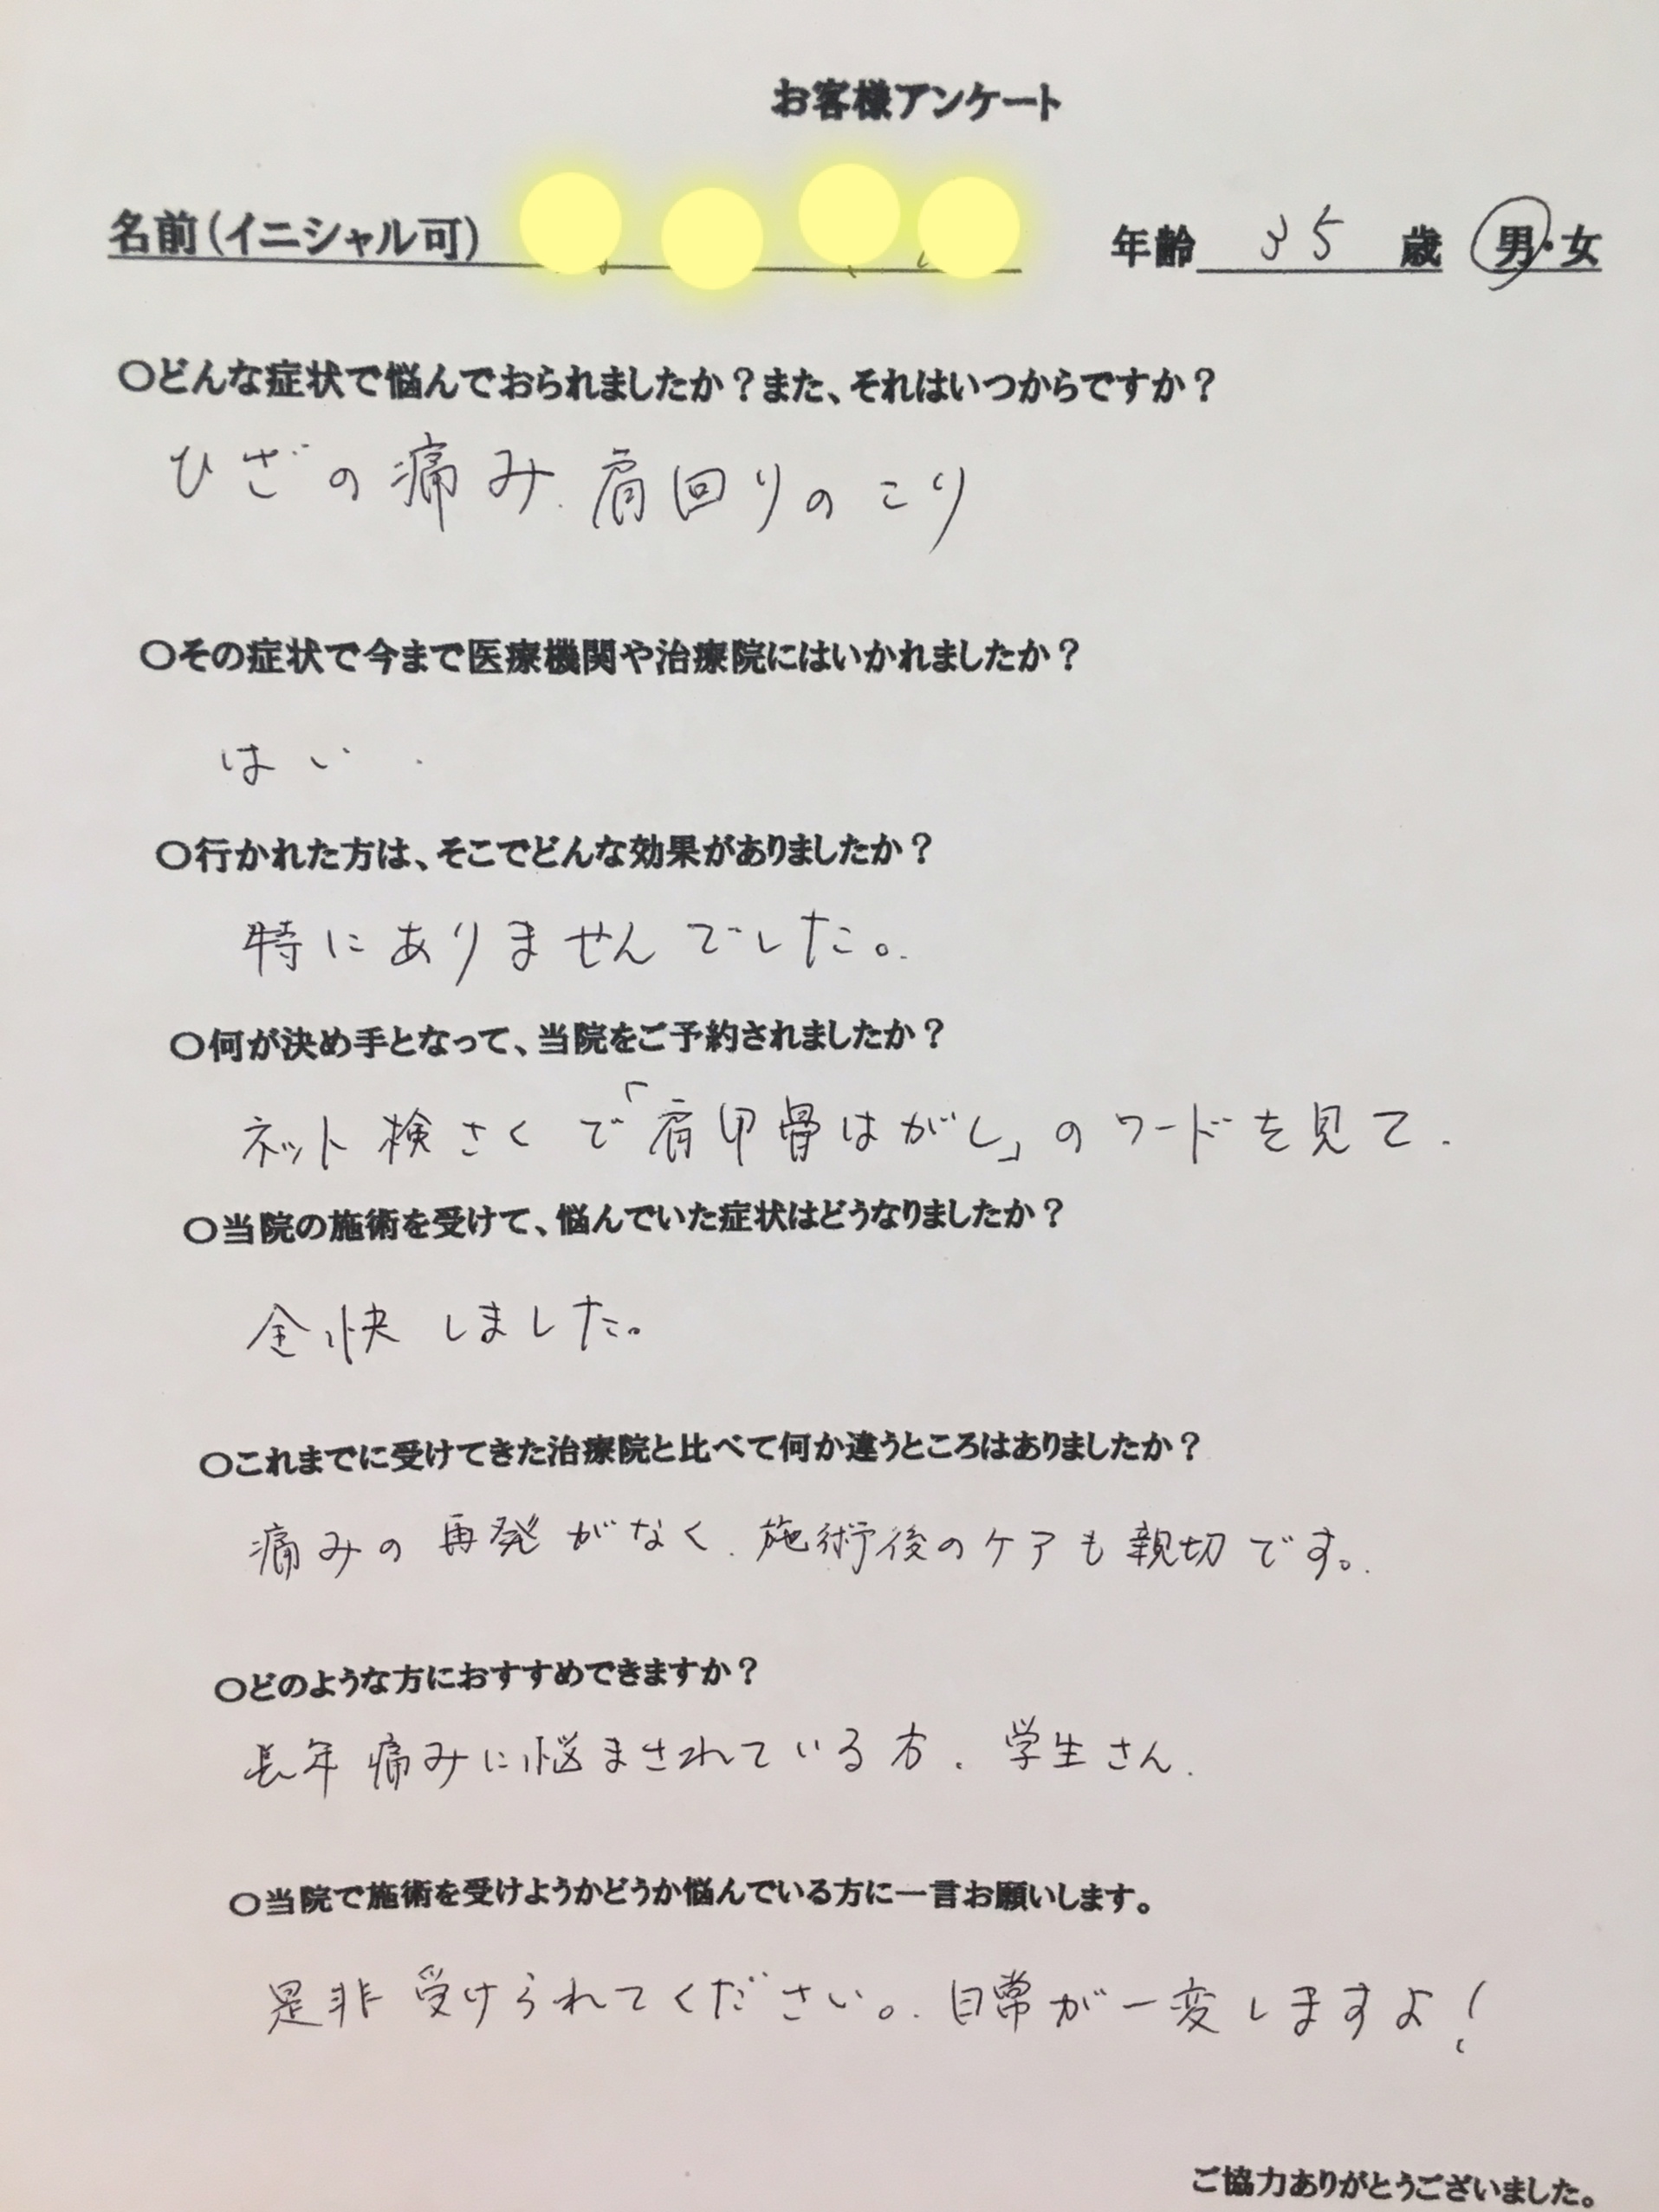 お客様アンケート
名前(イニシャル可) 年齢 35 歳 男・女
〇どんな症状で悩んでおられましたか?また、それはいつからですか?
ひざの痛み、肩回りのこり
〇その症状で今まで医療機関や治療院にはいかれましたか?
はい.
〇行かれた方は、そこでどんな効果がありましたか?
特にありませんでした。
〇何が決め手となって、当院をご予約されましたか?
ネット検さくで「肩甲骨はがし」のワードを見て.
〇当院の施術を受けて、悩んでいた症状はどうなりましたか?
全快しました。
〇これまでに受けてきた治療院と比べて何か違うところはありましたか?
痛みの再発がなく、施術後のケアも親切です。
〇どのような方におすすめできますか?
長年痛みに悩まされている方、学生さん.
〇当院で施術を受けようかどうか悩んでいる方に一言お願いします。
是非受けられてください。日常が一変しますよ!
ご協力ありがとうございました。